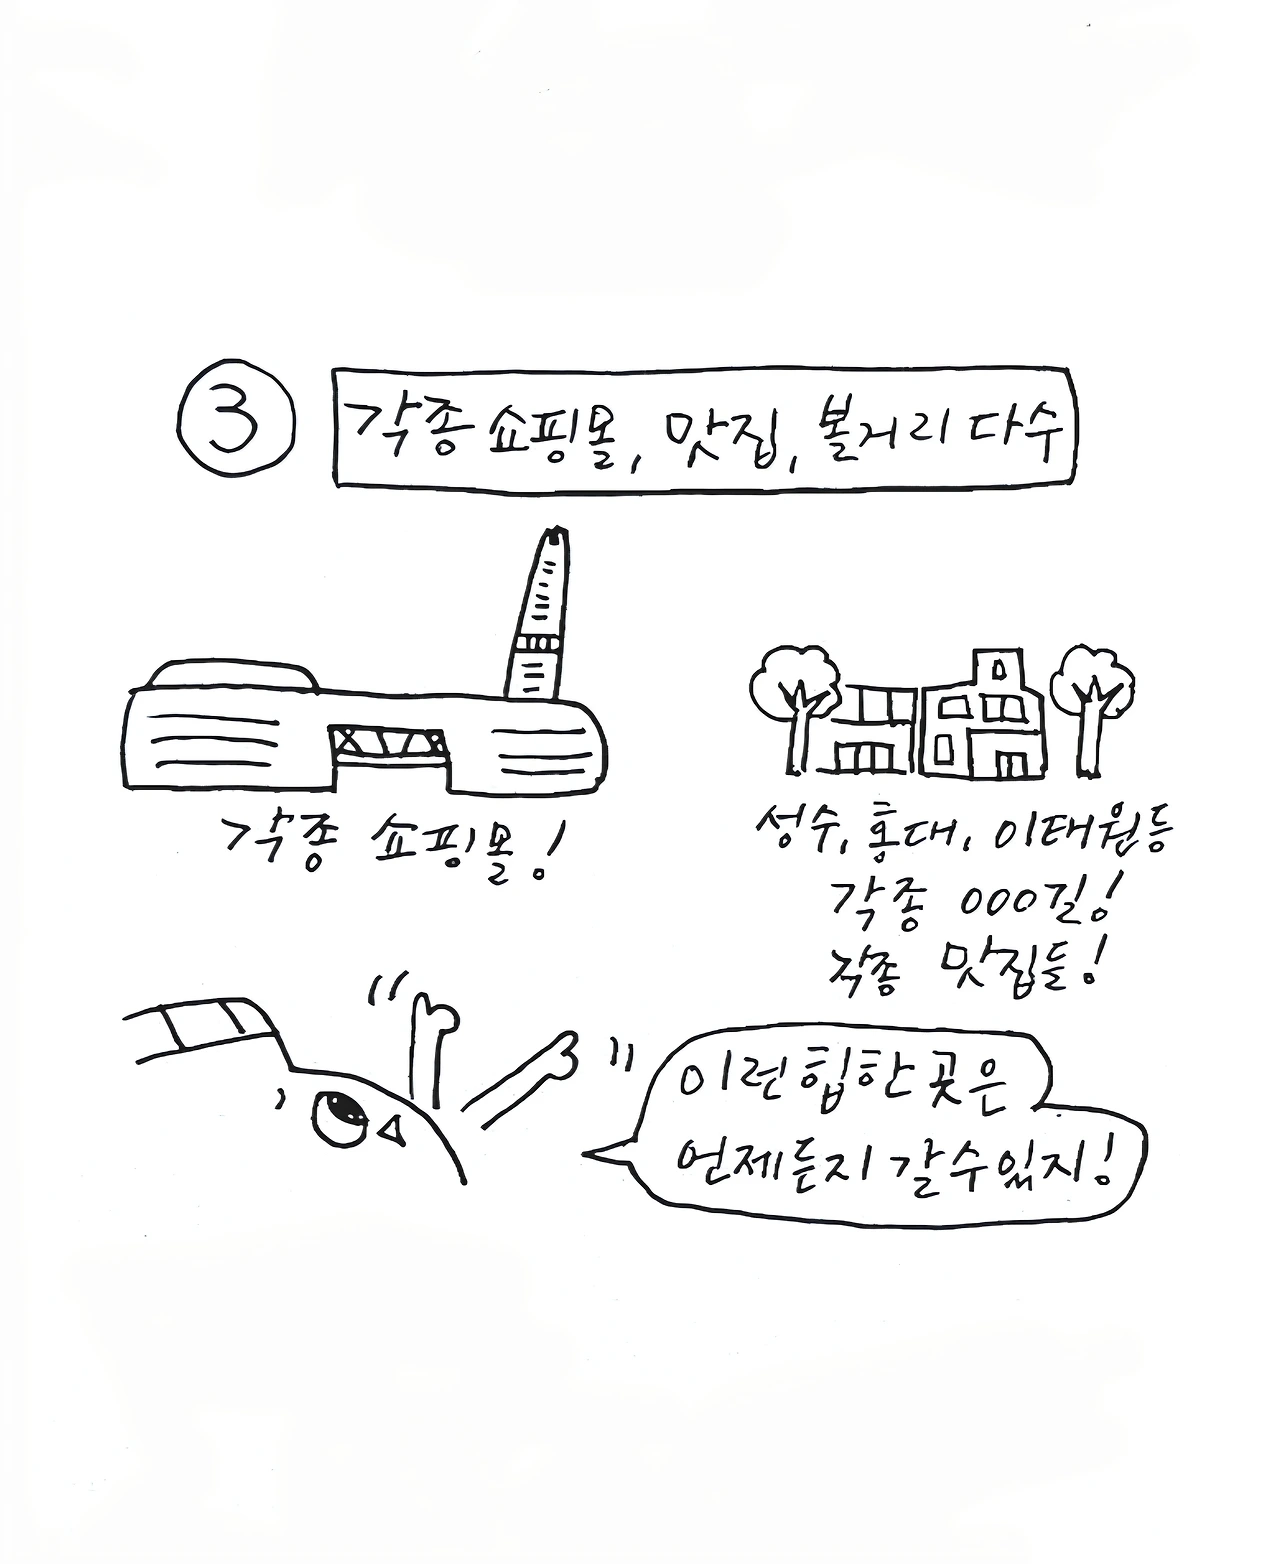 3
각종 쇼핑몰, 맛집, 볼거리 다수
각종 쇼핑몰!
성수, 홍대, 이태원 등
각종 OOO길!
각종 맛집들!
이런 힙한 곳은
언제든지 갈 수 있지!